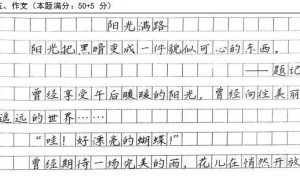 五、作文（本题满分：50+5 分）
阳光满路
阳光把黑暗变成一件貌似可心的东西。
——题记
曾经享受午后暖暖的阳光，曾经向往美丽
遥远的世界……
“哇！好漂亮的蝴蝶！”
曾经期待一场完美的雨，花儿在悄然开放